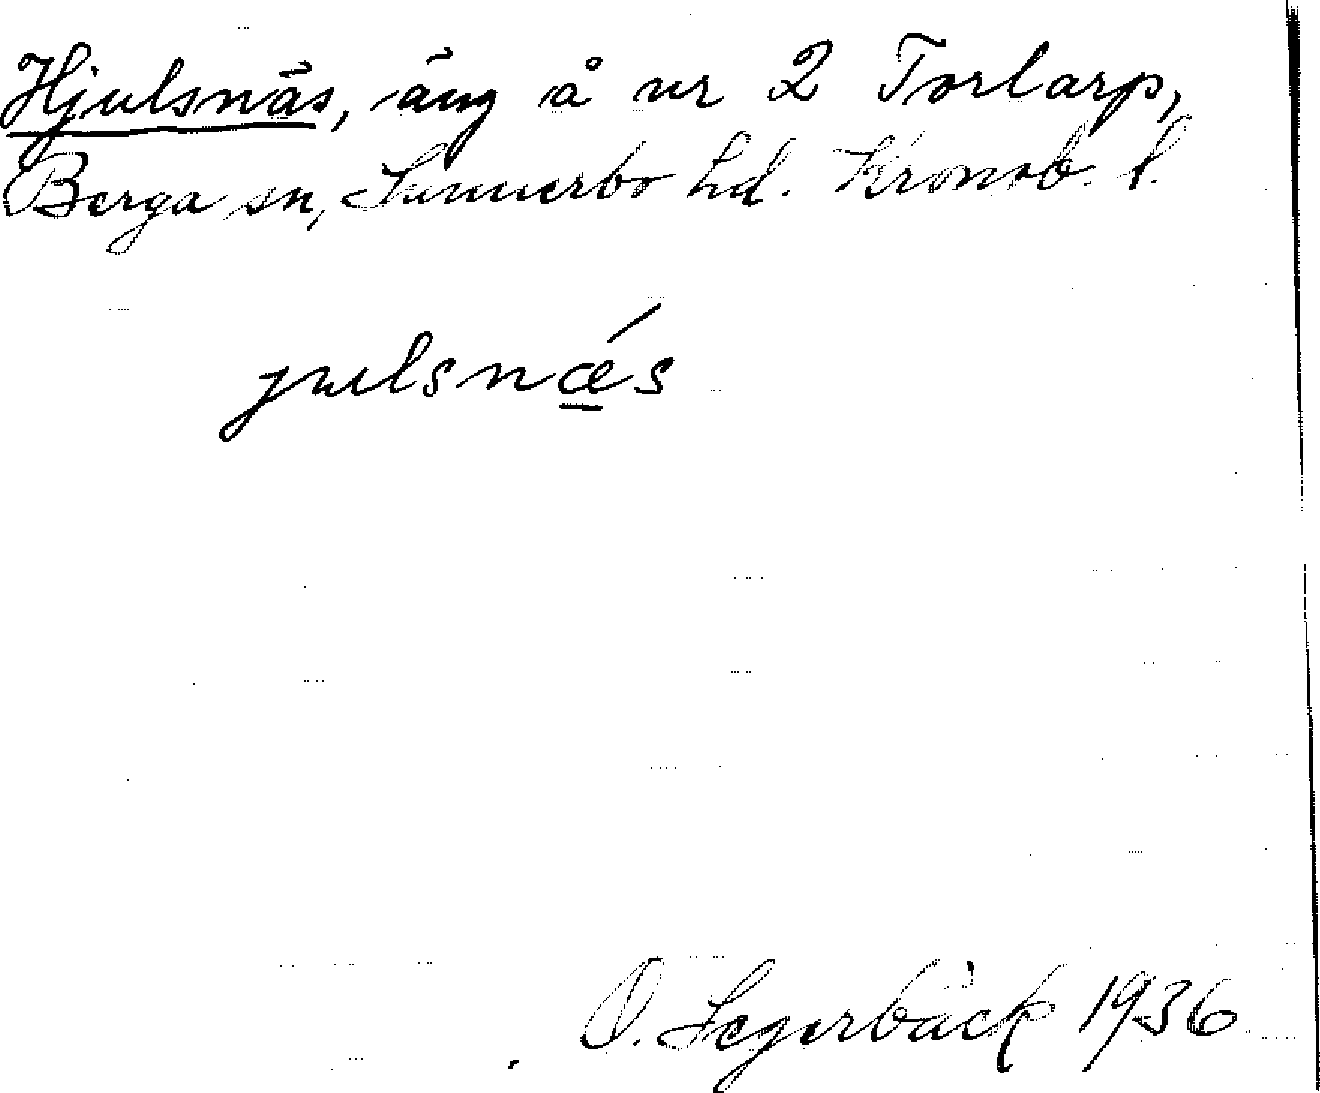 Hjulsnäs, äng å nr 2 Torlarp,
Berga sn, Sunnerbo hd. Kronob. l.
julsnǽ̱s
O. Segerbäck 1936